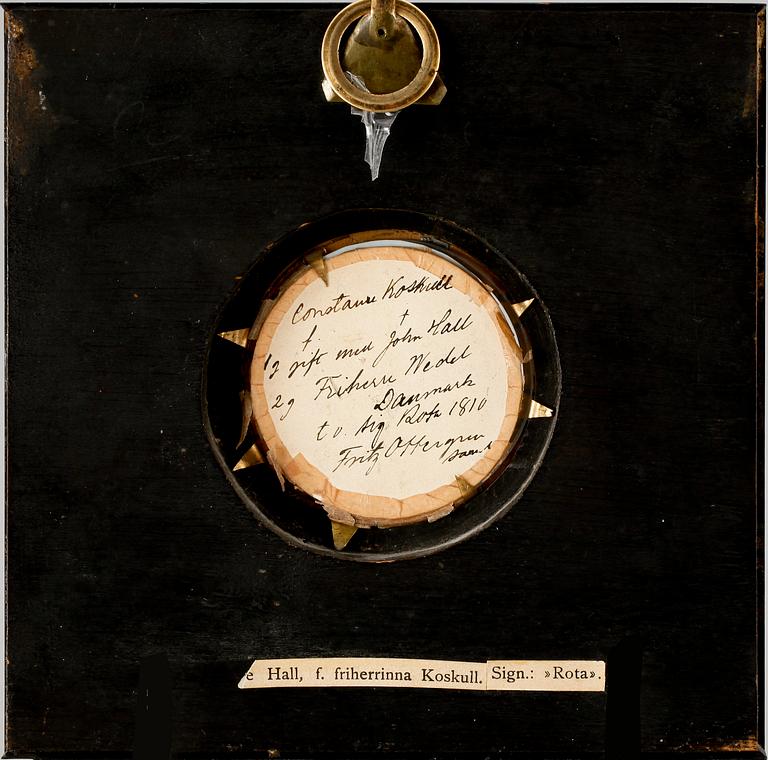 Constance Koskull
f. †
1 g gift med John Hall
2 g Friherre Wedel
Danmark
t v. sig Rota 1810
Fritz Ottergren
saml
e Hall, f. friherrinna Koskull. Sign.: »Rota».